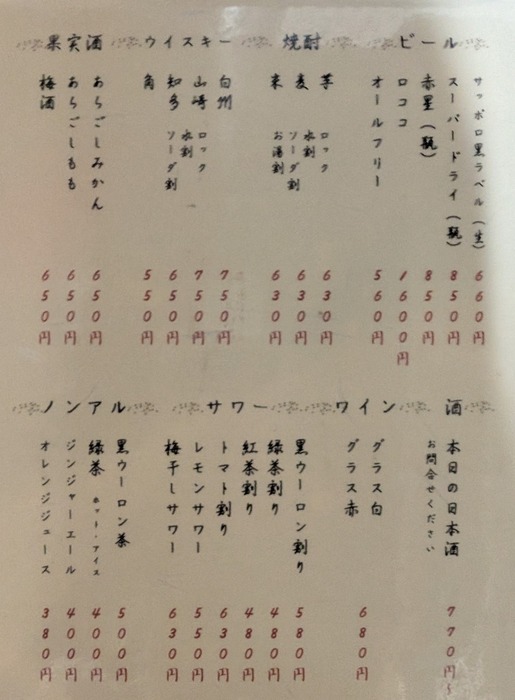 ビール
サッポロ黒ラベル(生) 660円
スーパードライ(瓶) 850円
赤星(瓶) 850円
ロココ 1600円
オールフリー 560円
焼酎
芋 630円
麦 630円
米 630円
ロック
水割
ソーダ割
お湯割
ウイスキー
白州 750円
山崎 750円
知多 650円
角 550円
ロック
水割
ソーダ割
果実酒
あらごしみかん 650円
あらごしもも 650円
梅酒 650円
酒
本日の日本酒 770円~
お問合せください
ワイン
グラス白
グラス赤
680円
サワー
黒ウーロン割り 580円
緑茶割り 480円
紅茶割り 480円
トマト割り 630円
レモンサワー 550円
梅干しサワー 630円
ノンアル
黒ウーロン茶 500円
緑茶 ホット・アイス 400円
ジンジャーエール 400円
オレンジジュース 380円